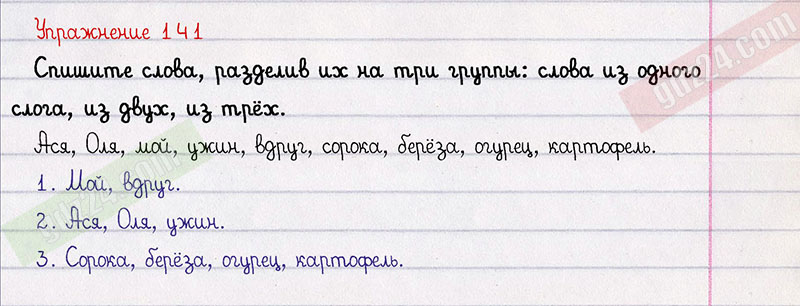 Упражнение 141
Спишите слова, разделив их на три группы: слова из одного
слога, из двух, из трёх.
Ася, Оля, мой, ужин, вдруг, сорока, берёза, огурец, картофель.
1. Мой, вдруг.
2. Ася, Оля, ужин.
3. Сорока, берёза, огурец, картофель.
gdz24.com
gdz24.com